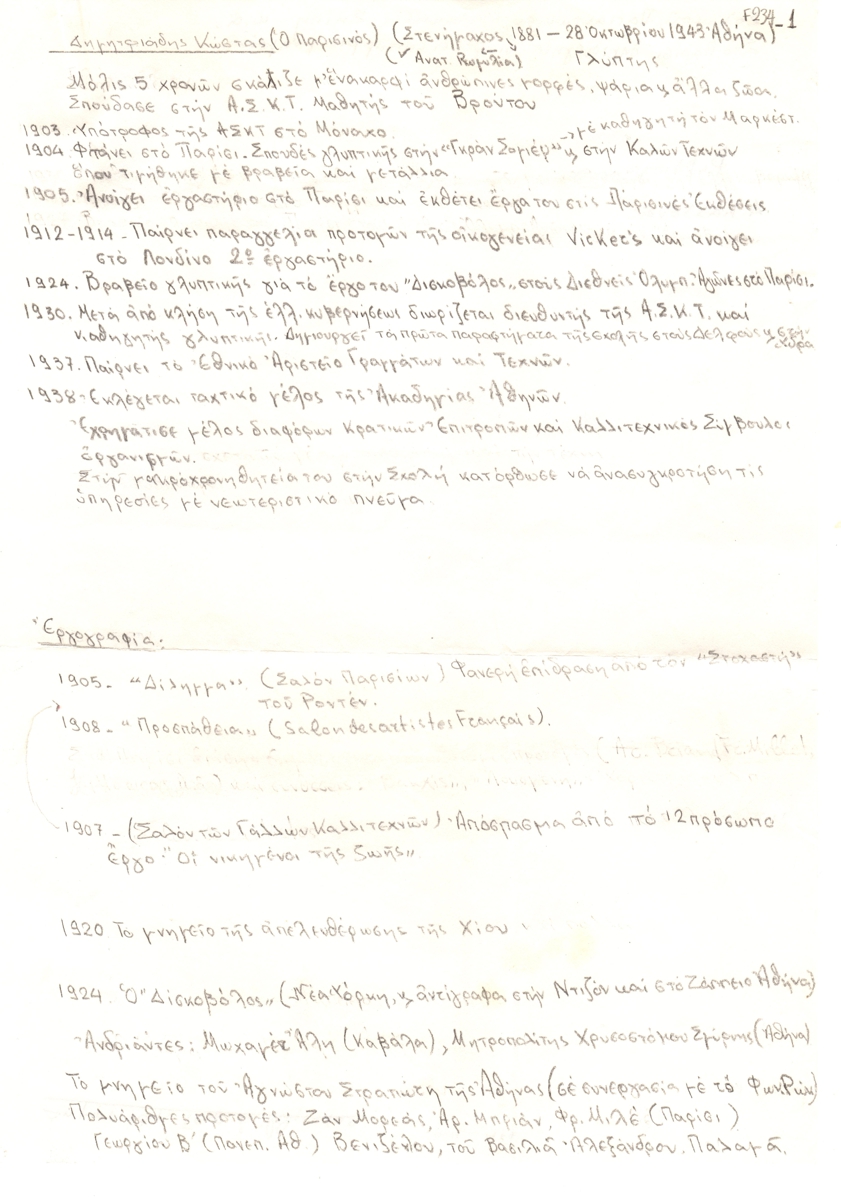 F234-1
Δημητριάδης Κώστας (Ὁ Παρισινός) (Στενήμαχος 1881 – 28 Ὀκτωβρίου 1943 Ἀθήνα)
(Ἀνατ. Ρωμυλία) Γλύπτης
Μόλις 5 χρονῶν σκάλιζε μ' ἕνα καρφί ἀνθρώπινες μορφές, ψάρια κ ἄλλα ζῶα.
Σπούδασε στήν Α.Σ.Κ.Τ. Μαθητής τοῦ Βρούτου
1903. Ὑπότροφος τῆς ΑΣΚΤ στό Μόναχο. → μέ καθηγητή τόν Μαρκέστ.
1904. Φτάνει στό Παρίσι. Σπουδές γλυπτικῆς στήν "Γκράν Σωμιέρ" κ στήν Καλῶν Τεχνῶν
ὅπου τιμήθηκε μέ βραβεία καί μετάλλια
1905. Ἀνοίγει ἐργαστήριο στό Παρίσι καί ἐκθέτει ἔργα του στίς Παρισινές Ἐκθέσεις
1912-1914 - Παίρνει παραγγελία προτομῶν τῆς οἰκογενείας Vickers καί ἀνοίγει
στό Λονδίνο 2ο ἐργαστήριο.
1924. Βραβεῖο γλυπτικῆς γιά τό ἔργο του "Δισκοβόλος" στούς Διεθνεῖς Ὀλυμπ. Ἀγῶνες στό Παρίσι.
1930. Μετά ἀπό κλήση τῆς ἑλλ. κυβερνήσεως διωρίζεται διευθυντής τῆς Α.Σ.Κ.Τ. καί
καθηγητής γλυπτικῆς. Δημιουργεῖ τά πρῶτα παραρτήματα τῆς σχολῆς στούς Δελφούς κ στήν
Ὕδρα
1937. Παίρνει τό Ἐθνικό Ἀριστεῖο Γραμμάτων καί Τεχνῶν.
1938 Ἐκλέγεται ταχτικό μέλος τῆς Ἀκαδημίας Ἀθηνῶν.
Ἐχρημάτισε μέλος διαφόρων κρατικῶν Ἐπιτροπῶν καί Καλλιτεχνικός Σύμβουλος
ὀργανισμῶν.
Στήν μακρόχρονη θητεία του στήν Σχολή κατόρθωσε νά ἀνασυγκροτήση τίς
ὑπηρεσίες μέ νεωτεριστικό πνεῦμα
Ἐργογραφία:
1905. "Δίλημμα" (Σαλόν Παρισίων) Φανερή ἐπίδραση ἀπό τόν "Στοχαστή"
τοῦ Ροντέν.
1908 - "Προσπάθεια" (Salon des artistes Français).
1907 - (Σαλόν τῶν Γάλλων Καλλιτεχνῶν) Ἀπόσπασμα ἀπό τό 12πρόσωπο
ἔργο "Οἱ νικημένοι τῆς ζωῆς"
1920 Το μνημεῖο τῆς ἀπελευθέρωσης τῆς Χίου
1924. Ὁ "Δισκοβόλος" (Νέα Ὑόρκη, κ ἀντίγραφα στήν Ντιζόν καί στό Ζάππειο Ἀθήνα)
Ἀνδριάντες: Μωχαμέτ Ἄλη (Καβάλα), Μητροπολίτης Χρυσοστόμου Σμύρνης (Ἀθήνα)
Το μνημεῖο τοῦ Ἀγνώστου Στρατιώτη τῆς Ἀθήνας (σέ συνεργασία μέ τό Φωκ. Ρώκ)
Πολυάριθμες προτομές: Ζάν Μορεάς, Ἀρ. Μπριάν, Φρ. Μιλέ (Παρίσι)
Γεωργίου Β' (Πανεπ. Αθ.) Βενιζέλου, τοῦ βασιλιᾶ Ἀλεξάνδρου. Παλαμᾶ.